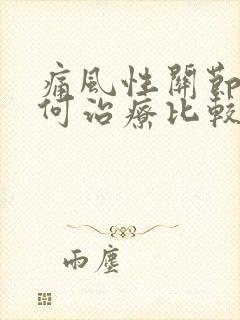 痛風性關節
何治療比較
雨塵